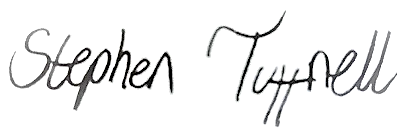 Stephen Tuffnell